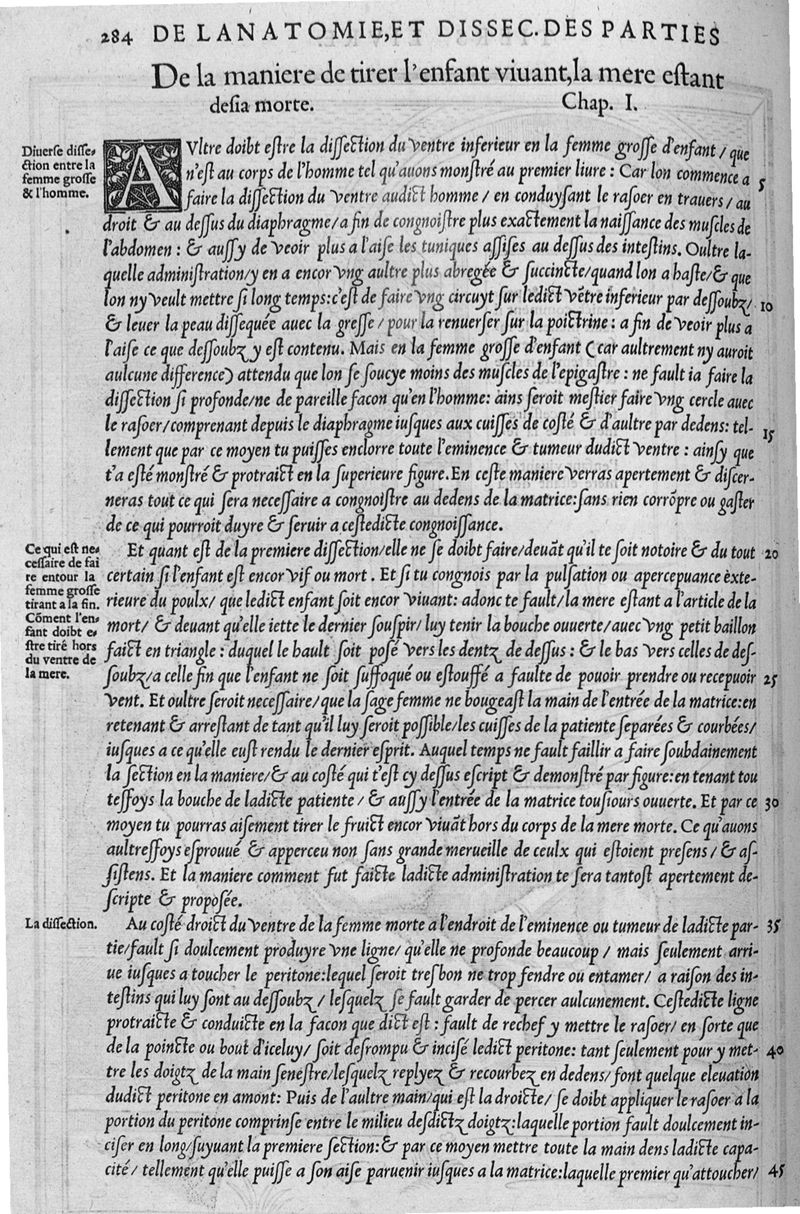 284 DE LANATOMIE, ET DISSEC. DES PARTIES
De la maniere de tirer l'enfant viuant, la mere estant
desia morte. Chap. I.
Diuerse disse-
ction entre la
femme grosse
& l'homme.
AVltre doibt estre la dissection du ventre inferieur en la femme grosse d'enfant / que
n'est au corps de l'homme tel qu'auons monstré au premier liure : Car lon commence a
5
faire la dissection du ventre audict homme / en conduysant le rasoer en trauers / au
droit & au dessus du diaphragme / a fin de congnoistre plus exactement la naissance des muscles de
l'abdomen : & aussy de veoir plus a l'aise les tuniques assises au dessus des intestins. Oultre la-
quelle administration / y en a encor vng aultre plus abregée & succincte / quand lon a haste / & que
lon ny veult mettre si long temps : c'est de faire vng circuyt sur ledict vētre inferieur par dessoubz / 10
& leuer la peau dissequée auec la gresse / pour la renuerser sur la poictrine : a fin de veoir plus a
l'aise ce que dessoubz y est contenu. Mais en la femme grosse d'enfant (car aultrement ny auroit
aulcune difference) attendu que lon se soucye moins des muscles de l'epigastre : ne fault ia faire la
dissection si profonde / ne de pareille facon qu'en l'homme : ains seroit mestier faire vng cercle auec
le rasoer / comprenant depuis le diaphragme iusques aux cuisses de costé & d'aultre par dedens : tel-
15
lement que par ce moyen tu puisses enclorre toute l'eminence & tumeur dudict ventre : ainsy que
t'a esté monstré & protraict en la superieure figure. En ceste maniere verras apertement & discer-
neras tout ce qui sera necessaire a congnoistre au dedens de la matrice : sans rien corrōpre ou gaster
de ce qui pourroit duyre & seruir a cestedicte congnoissance.
Ce qui est ne-
cessaire de fai
re entour la
femme grosse
tirant a la fin.
Cōment l'en-
fant doibt e-
stre tiré hors
du ventre de
la mere.
Et quant est de la premiere dissection / elle ne se doibt faire / deuāt qu'il te soit notoire & du tout 20
certain si l'enfant est encor vif ou mort. Et si tu congnois par la pulsation ou apercepuance exte-
rieure du poulx / que ledict enfant soit encor viuant : adonc te fault / la mere estant a l'article de la
mort / & deuant qu'elle iette le dernier souspir / luy tenir la bouche ouuerte / auec vng petit baillon
faict en triangle : duquel le hault soit posé vers les dentz de dessus : & le bas vers celles de des-
soubz / a celle fin que l'enfant ne soit suffoqué ou estouffé a faulte de pouoir prendre ou recepuoir 25
vent. Et oultre seroit necessaire / que la sage femme ne bougeast la main de l'entrée de la matrice : en
retenant & arrestant de tant qu'il luy seroit possible / les cuisses de la patiente separées & courbées /
iusques a ce qu'elle eust rendu le dernier esprit. Auquel temps ne fault faillir a faire soubdainement
la section en la maniere / & au costé qui t'est cy dessus escript & demonstré par figure : en tenant tou
tessoys la bouche de ladicte patiente / & aussy l'entrée de la matrice tousiours ouuerte. Et par ce 30
moyen tu pourras aisement tirer le fruict encor viuāt hors du corps de la mere morte. Ce qu'auons
aultressoys esprouué & apperceu non sans grande merueille de ceulx qui estoient presens / & as-
sistens. Et la maniere comment fut faicte ladicte administration te sera tantost apertement de-
scripte & proposée.
La dissection.
Au costé droict du ventre de la femme morte a l'endroit de l'eminence ou tumeur de ladicte par- 35
tie / fault si doulcement produyre vne ligne / qu'elle ne profonde beaucoup / mais seulement arri-
ue iusques a toucher le peritone : lequel seroit tresbon ne trop fendre ou entamer / a raison des in-
testins qui luy sont au dessoubz / lesquelz se fault garder de percer aulcunement. Cestedicte ligne
protraicte & conduicte en la facon que dict est : fault de rechef y mettre le rasoer / en sorte que
de la poincte ou bout d'iceluy / soit desrompu & incisé ledict peritone : tant seulement pour y met- 40
tre les doigtz de la main senestre / lesquelz replyez & recourbez en dedens / font quelque eleuation
dudict peritone en amont : Puis de l'aultre main / qui est la droicte / se doibt appliquer le rasoer a la
portion du peritone comprinse entre le milieu desdictz doigtz : laquelle portion fault doulcement in-
ciser en long / suyuant la premiere section : & par ce moyen mettre toute la main dens ladicte capa-
cité / tellement qu'elle puisse a son aise paruenir iusques a la matrice : laquelle premier qu'attoucher / 45